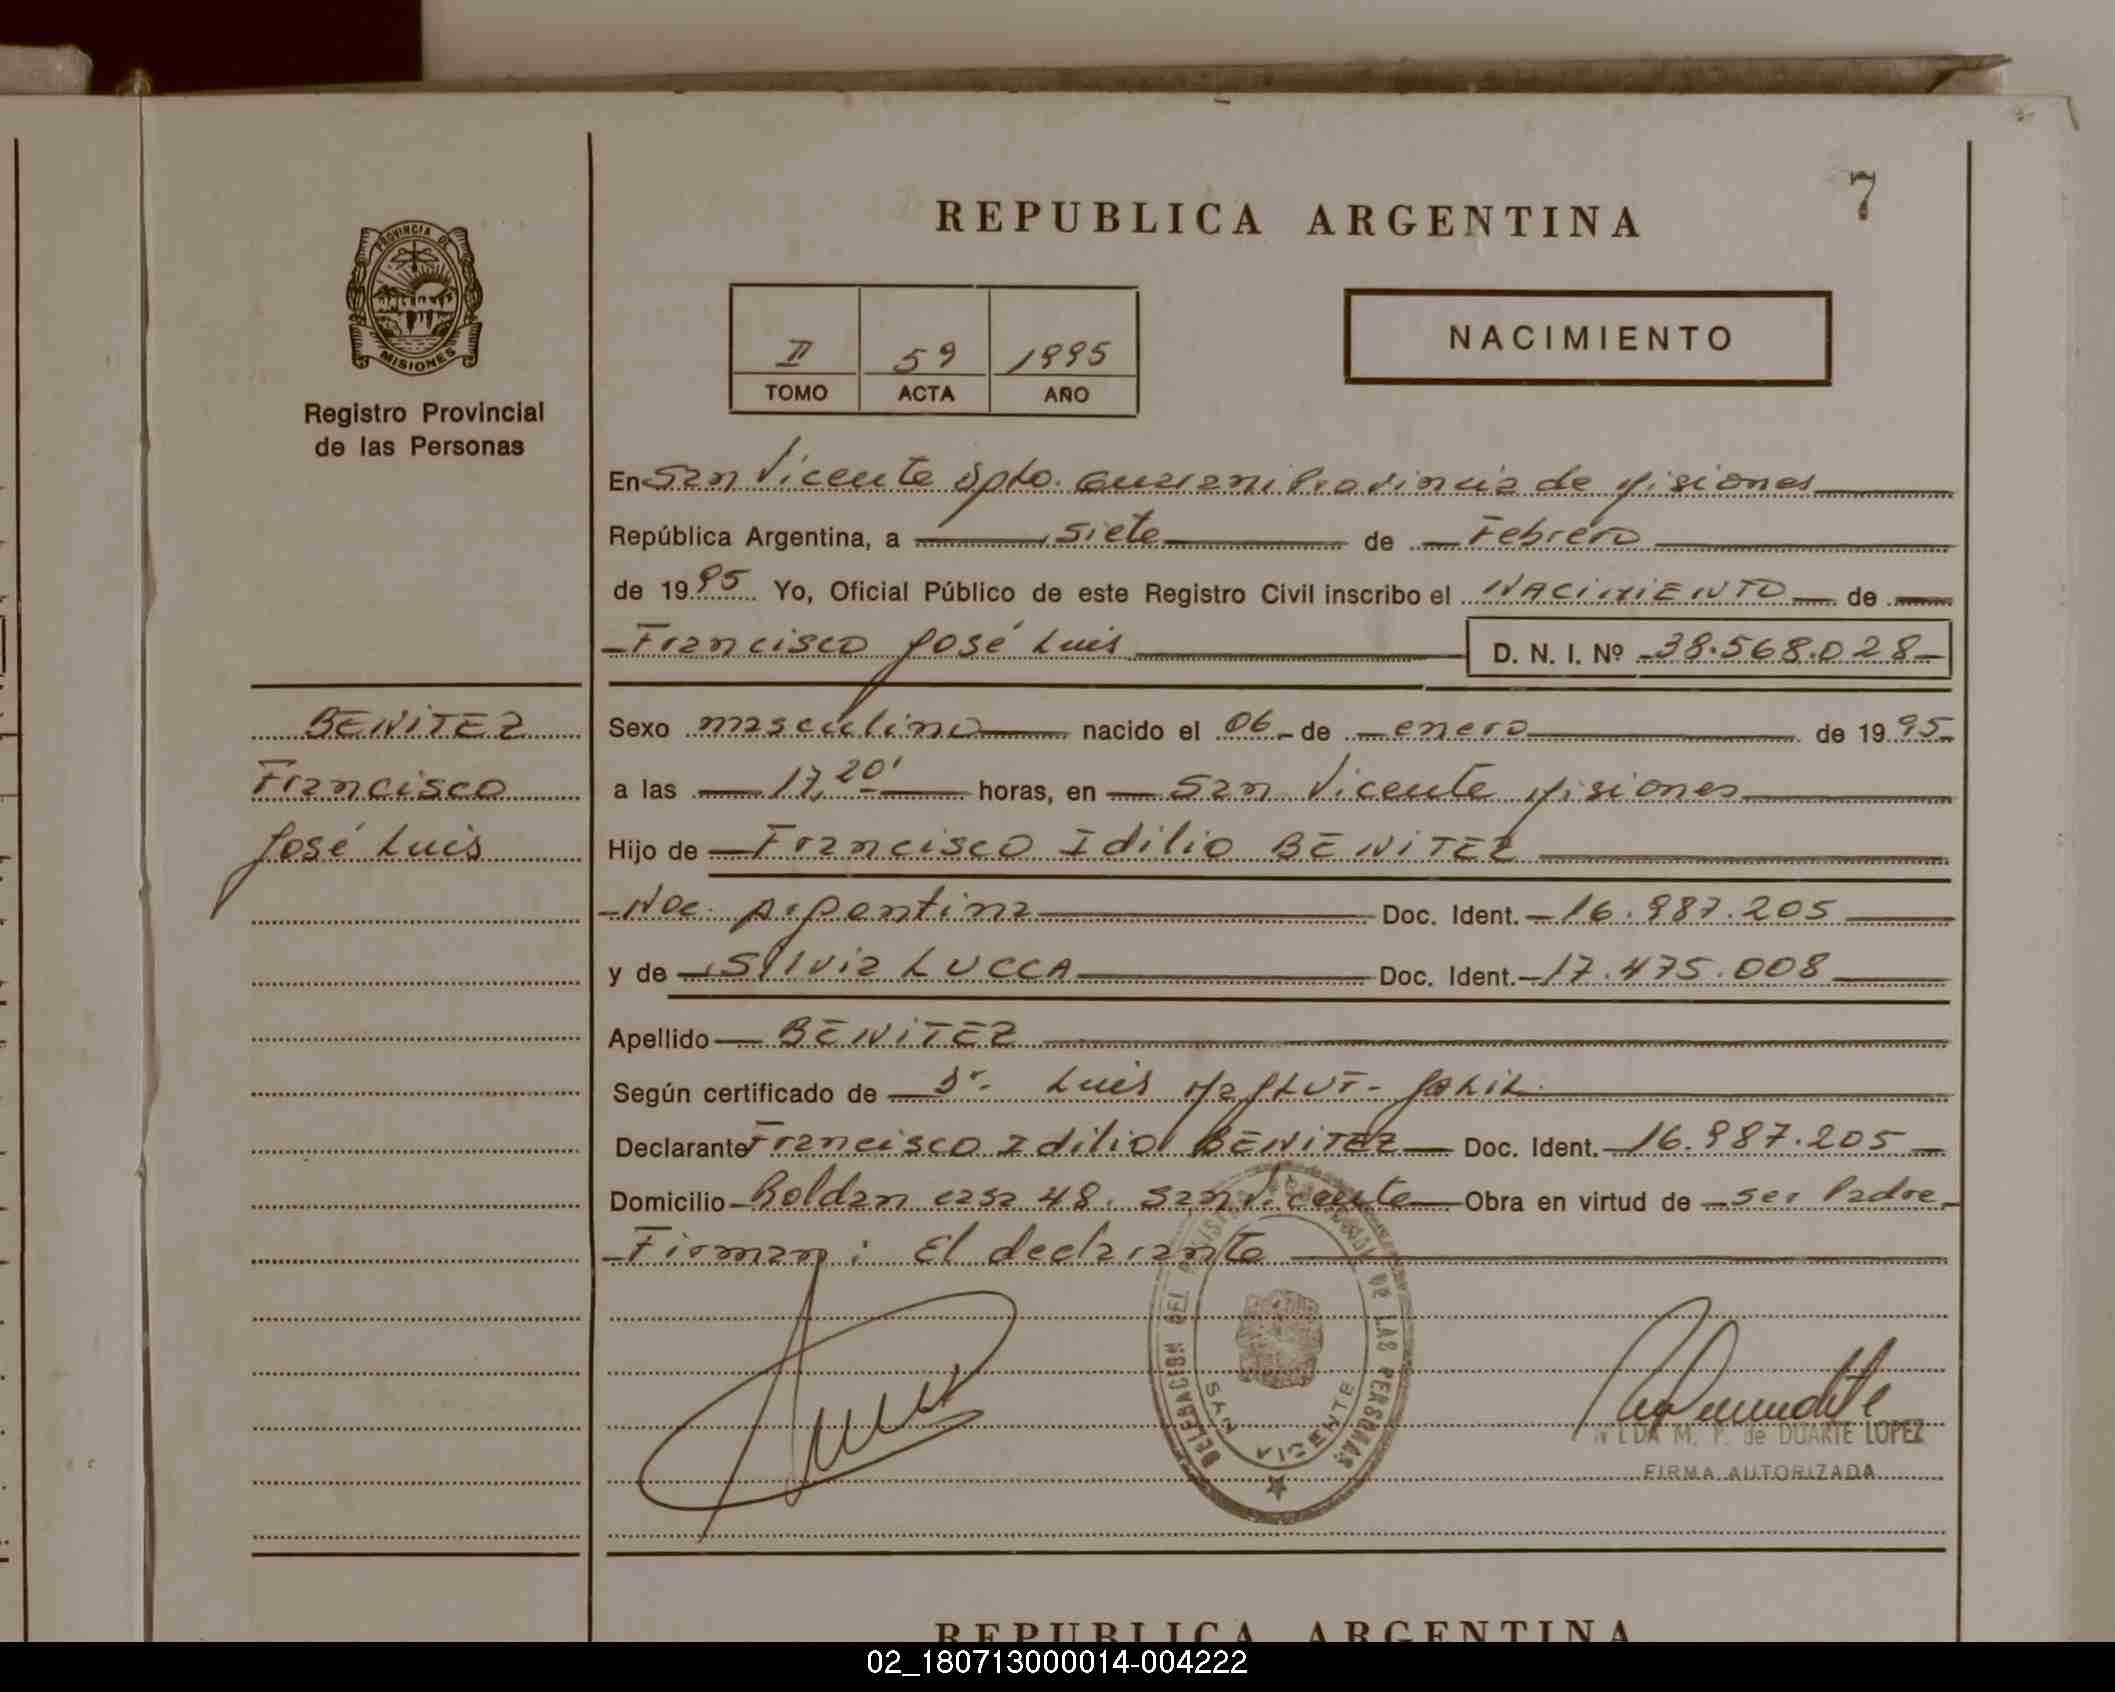 7
REPUBLICA ARGENTINA
PROVINCIA DE
MISIONES
Registro Provincial
de las Personas
II 59 1995
TOMO ACTA AÑO
NACIMIENTO
En San Vicente Dpto. Guarani Provincia de Misiones
República Argentina, a siete de Febrero
de 1995 Yo, Oficial Público de este Registro Civil inscribo el NACIMIENTO de
Francisco José Luis D. N. I. Nº 38.568.028
BENITEZ
Francisco
José Luis
Sexo masculino nacido el 06 de enero de 1995
a las 17,20' horas, en San Vicente Misiones
Hijo de Francisco Idilio BENITEZ
Nac. Argentina Doc. Ident. 16.987.205
y de Silvia LUCCA Doc. Ident. 17.475.008
Apellido BENITEZ
Según certificado de Dr. Luis
Declarante Francisco Idilio BENITEZ Doc. Ident. 16.987.205
Domicilio Roldan casa 48. San Vicente Obra en virtud de ser Padre
Firman: El declarante
DELEGACION DEL REGISTRO PROVINCIAL DE LAS PERSONAS
SAN VICENTE
M. P. de DUARTE LOPEZ
FIRMA AUTORIZADA
REPUBLICA ARGENTINA
02_180713000014-004222